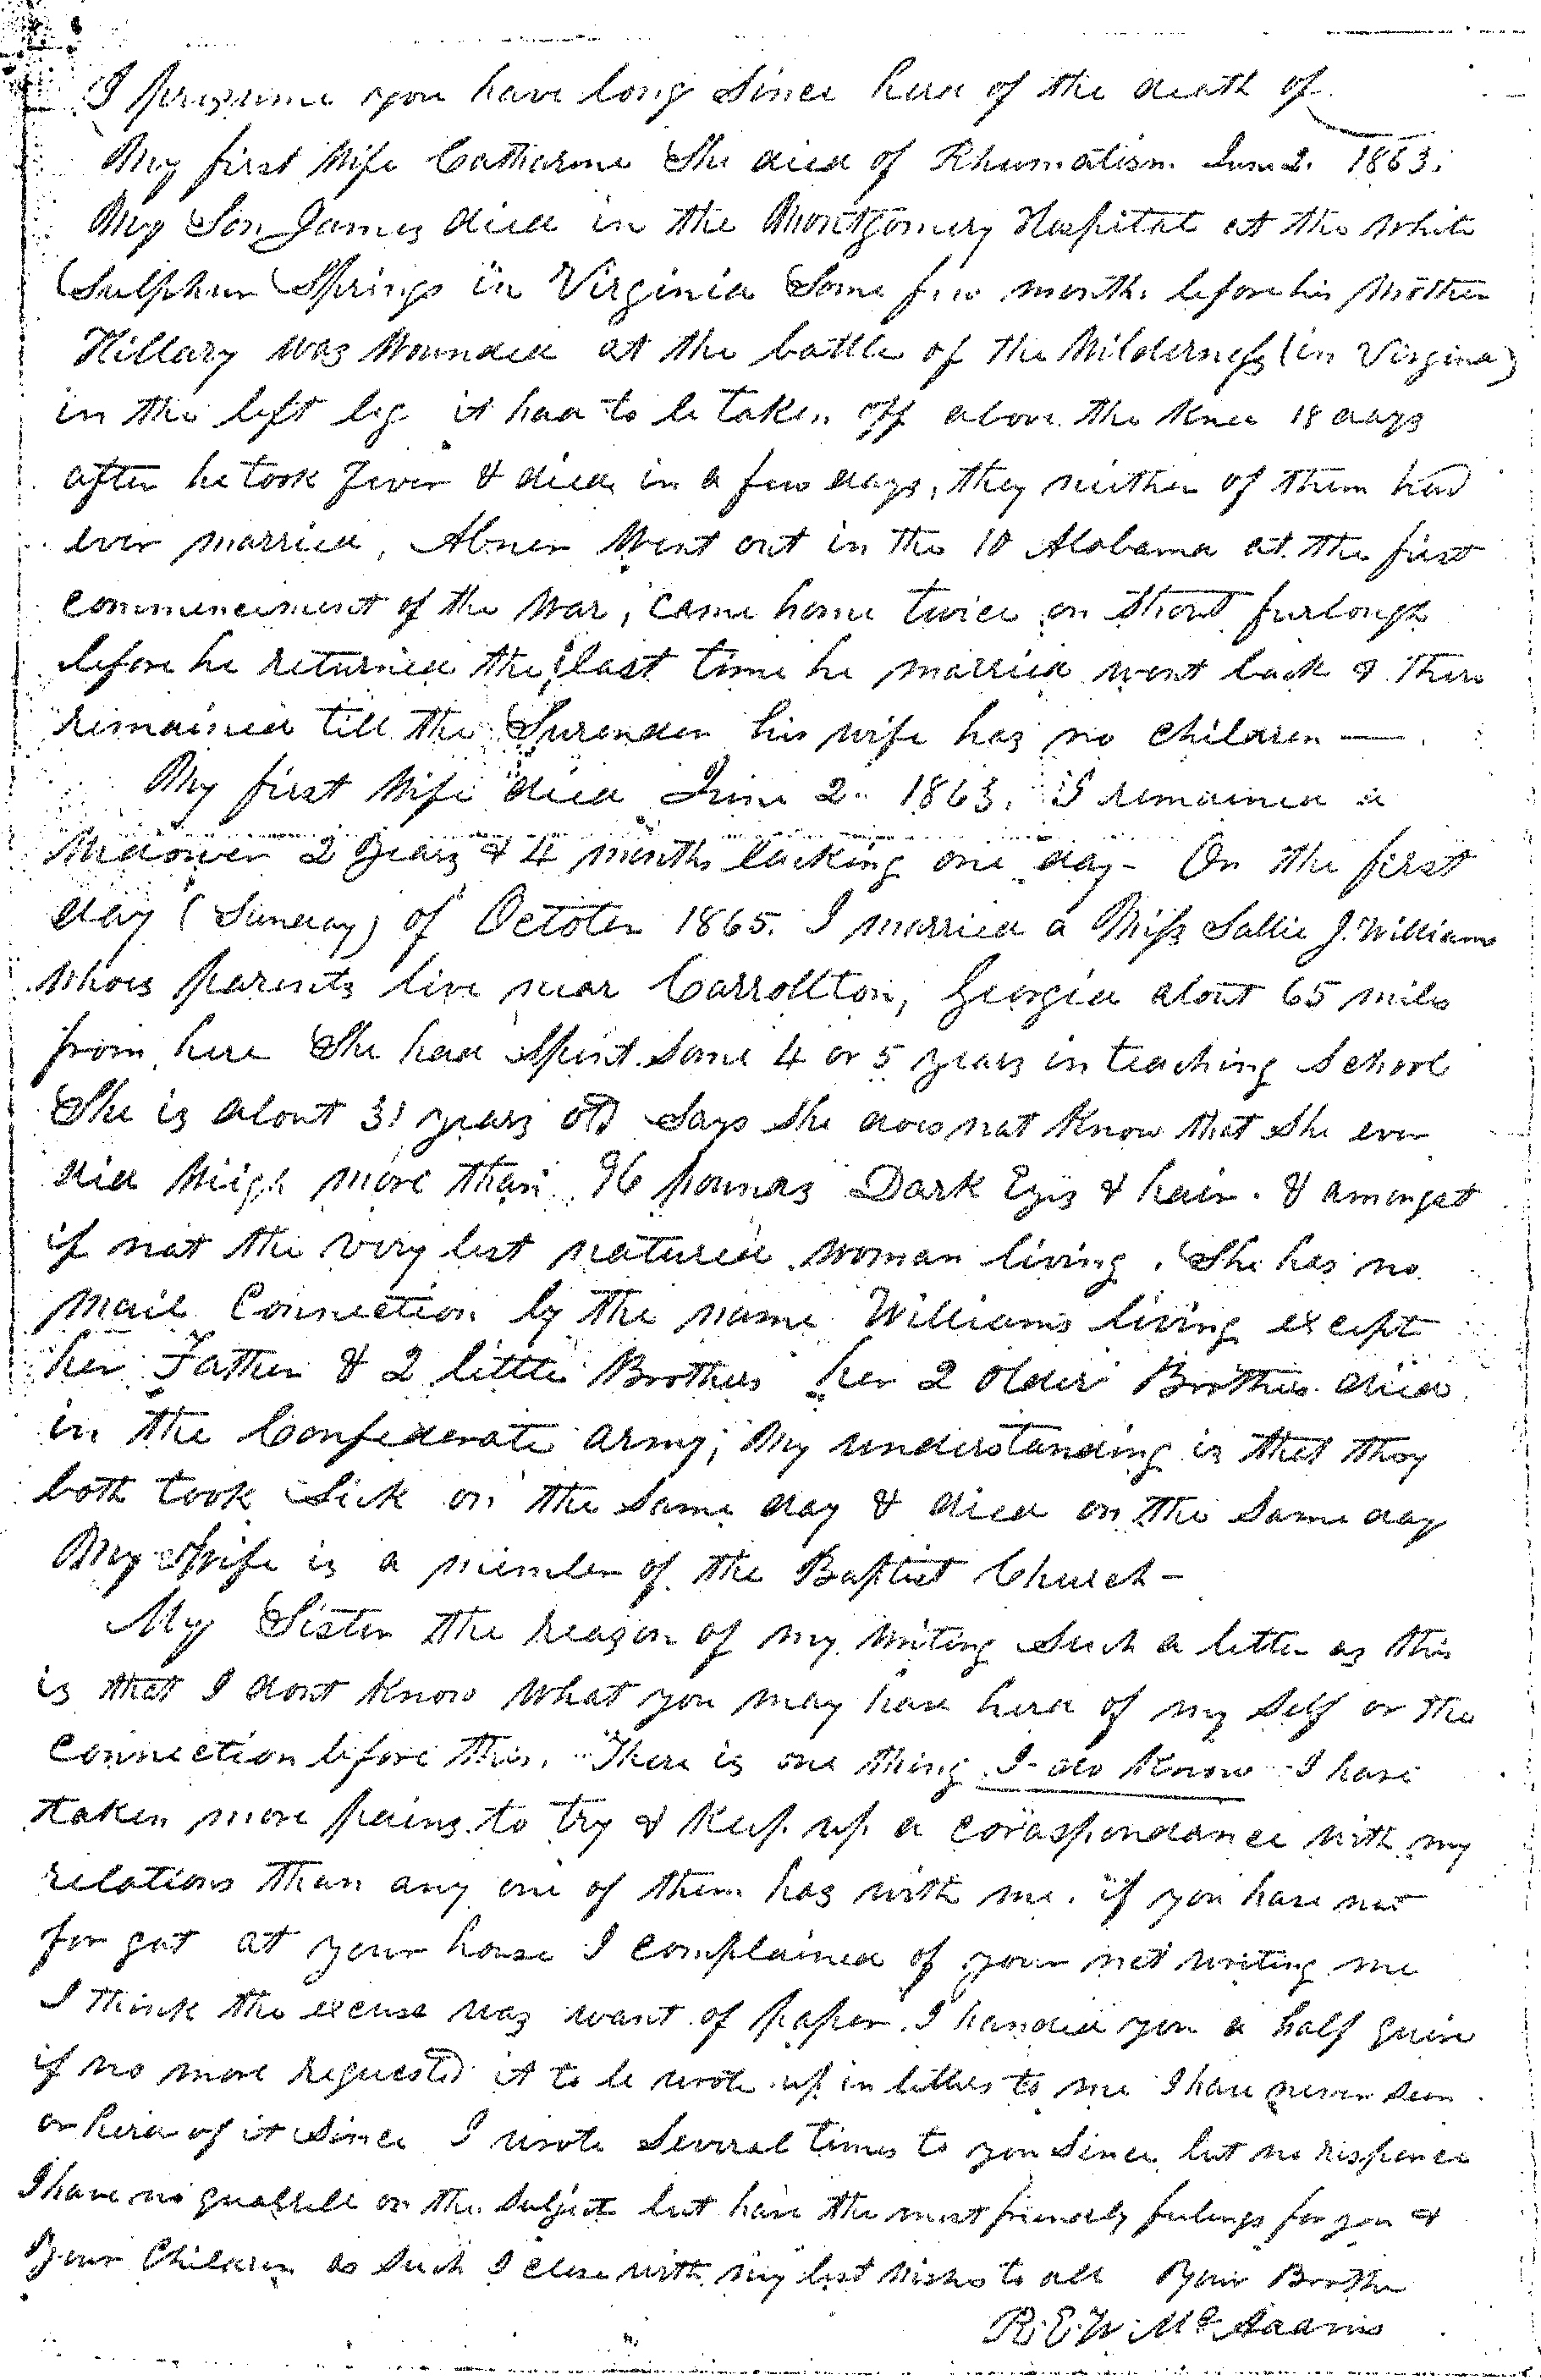 I presume you have long since herd of the death of
My first Wife Catharine She died of Rhumatism June 2. 1863.
My Son James died in the Montgomery Hospital at the White
Sulphur Springs in Virginia Some few months before his Mother
Hillary was Wounded at the battle of the Wilderness (in Virgina)
in the left leg it had to be taken off above the Knee 18 days
after he took Fever & died in a few days, they neither of them had
ever married, Abner Went out in the 10 Alabama at the first
commencement of the War, came home twice on short furlough
before he returned the last time he married went back & there
remained till the Surender his wife has no children —
My first Wife died June 2. 1863. I remained a
Widower 2 years & 4 months lacking one day - On the first
day (Sunday) of October 1865. I married a Miss Sallie J. Williams
whoes parents live near Carrollton, Georgia about 65 miles
from here She had Spent Some 4 or 5 years in teaching School
She is about 31 years old Says She does not Know that She ever
did Weigh more than 96 pounds Dark Eyes & hair. & amongst
if not the very best natured woman living. She has no
mail Connection by the name Williams living except
her Father & 2 little Brothers her 2 older Brothers died
in the Confederate army, My understanding is that they
both took Sick on the Same day & died on the Same day
My Wife is a member of the Baptist Church -
My Sister the reason of my Writing Such a letter as this
is that I dont Know What you may have herd of my Self or the
connection before this. There is one thing I do Know I have
taken more pains to try & Keep up a coraspondance with my
relations than any one of them has with me. if you have not
for got at your house I complained of your not writing me
I think the excuse was want of paper. I handed you a half quire
if no more requested it to be wrote up in letters to me I have never Seen
or herd of it Since I wrote Several times to you Since but no responce
I have no quarrele on the Subject but have the most friendly feelings for you &
your Children as Such I close with my best wishes to all Your Brother
R. E. W. McAdams